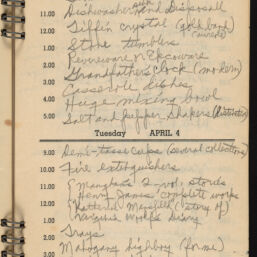 11.00 Dishwasher and Disposall
12.00 Tiffin crystal (gold band)
1.00 Stone tumblers
2.00
3.00 Grandfather's clock (modern)
4.00 Casserole dishes
Huge mixing bowl
5.00 Salt and pepper shakers (distinctive)
Tuesday APRIL 4
9.00 Demi-tasse cups (several collections)
10.00 Fire extinguishers
11.00 2-vol. stories
Henry James' complete works
12.00 Katherine (story of)
1.00 Virginia Woolf's Diary
2.00 Trays
3.00 Mahogany highboy (for me)